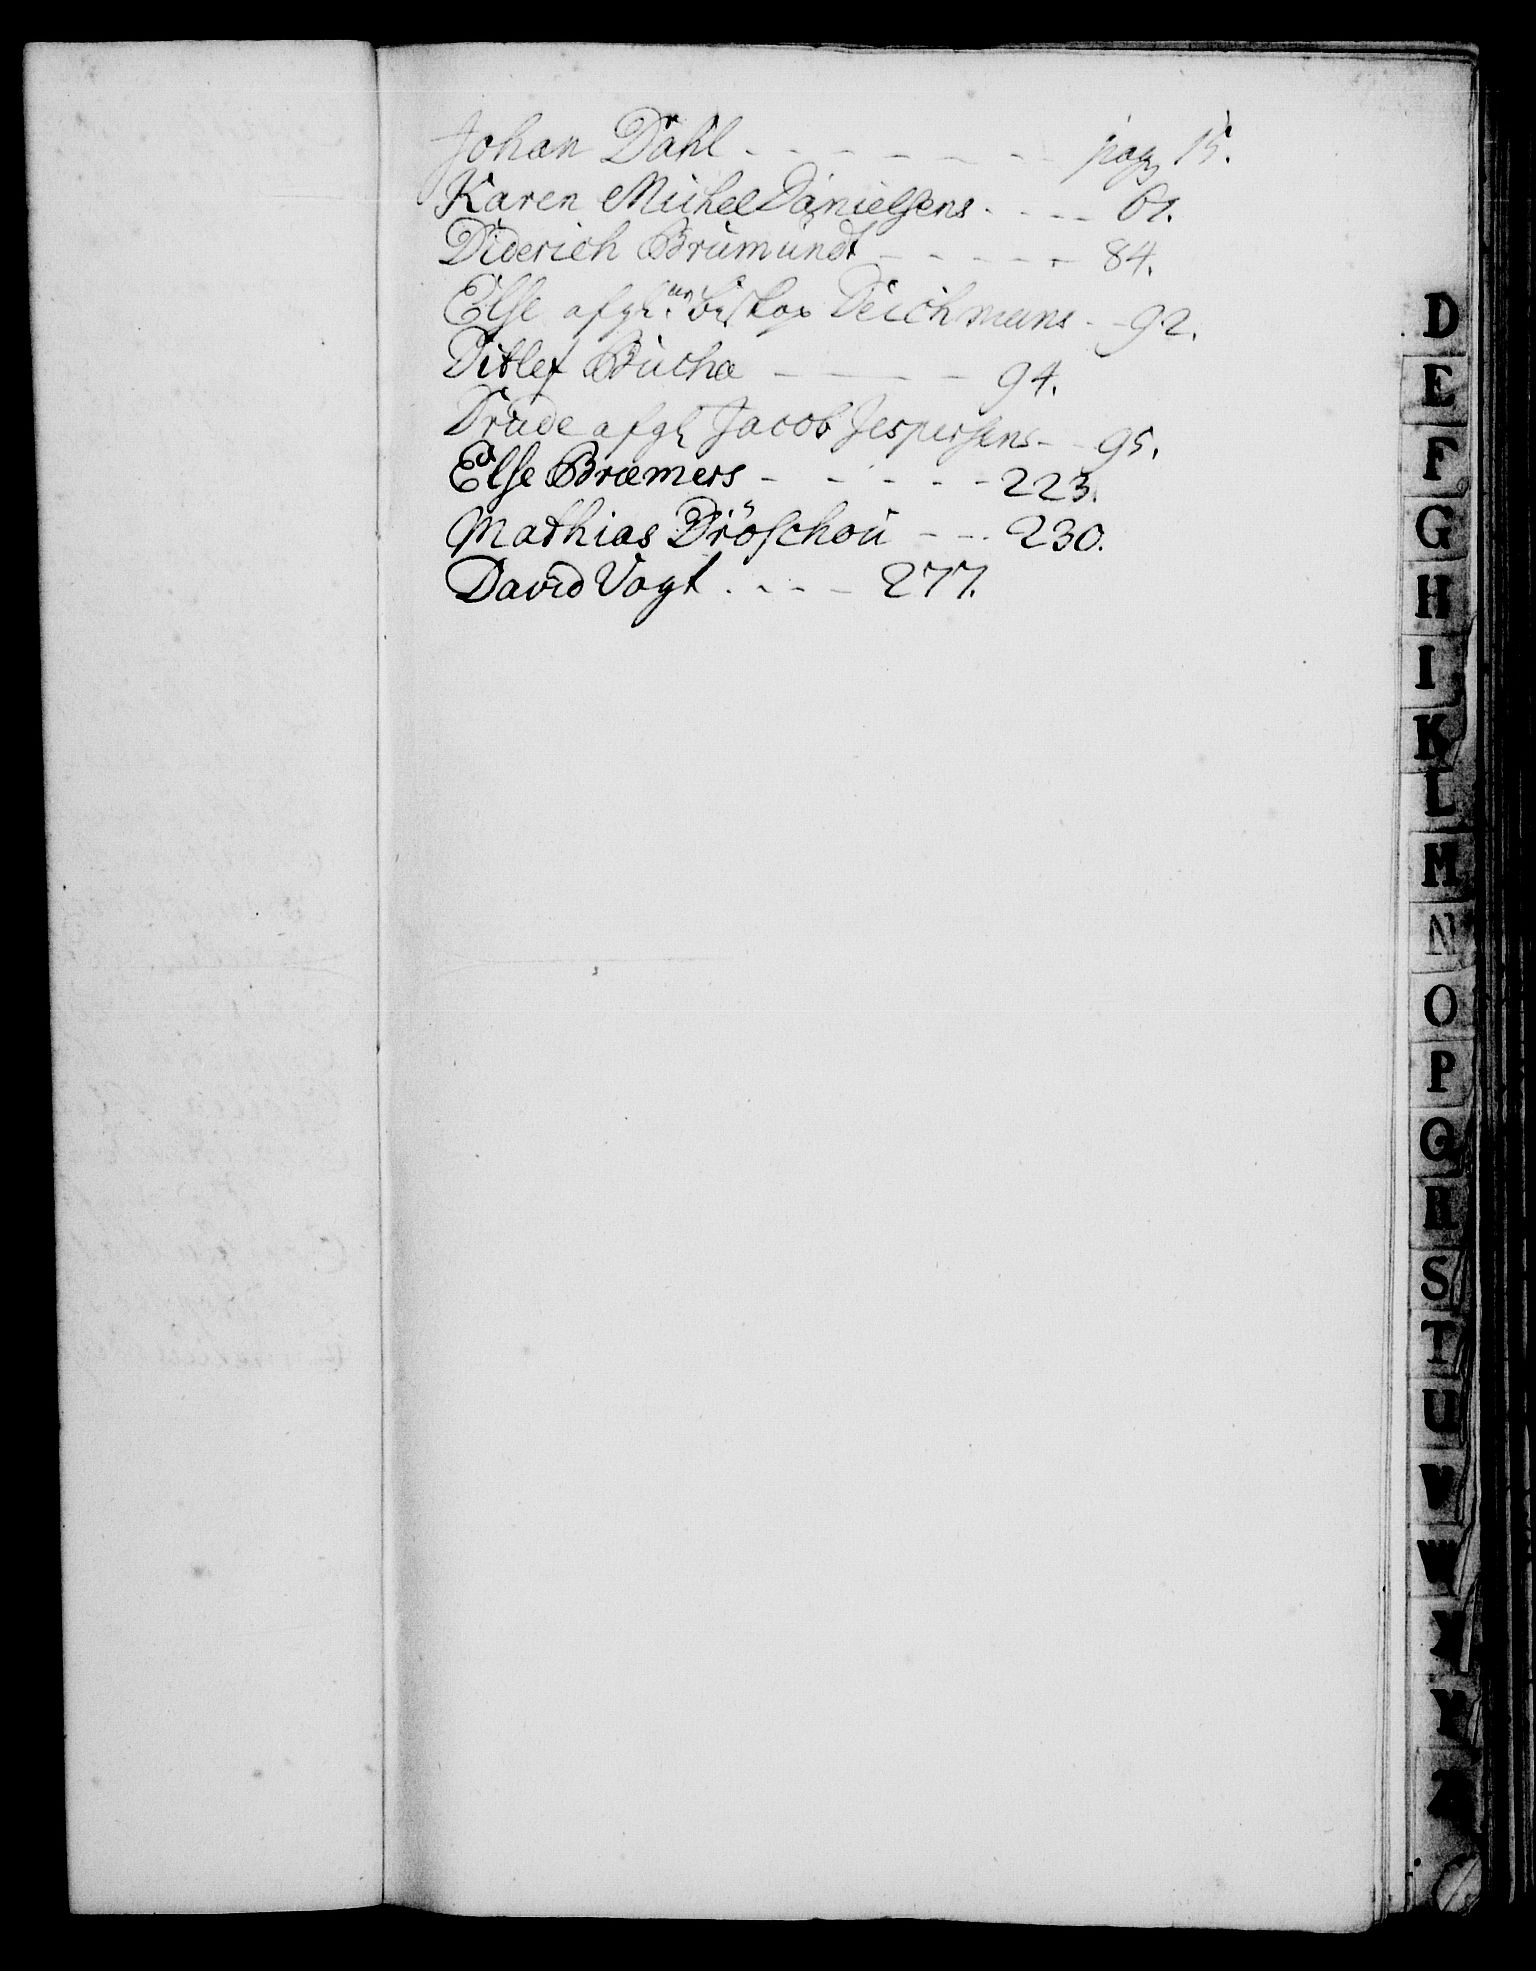 Johan Dahl - - - - - - - pag 15.
Karen Michel Danielsens - - - - 61.
Diderich Brumundt - - - - - 84.
Else afgl. biskop Deichmans - - 92.
Ditlef Bucha - - - - 94.
Drude afgl Jacob Jespersens - - 95.
Else Bræmers - - - - - - 223.
Mathias Dröschou - - - 230.
David Vogt - - - - 277.
D
E
F
G
H
I
K
L
M
N
O
P
Q
R
S
T
U
V
W
X
Y
Z